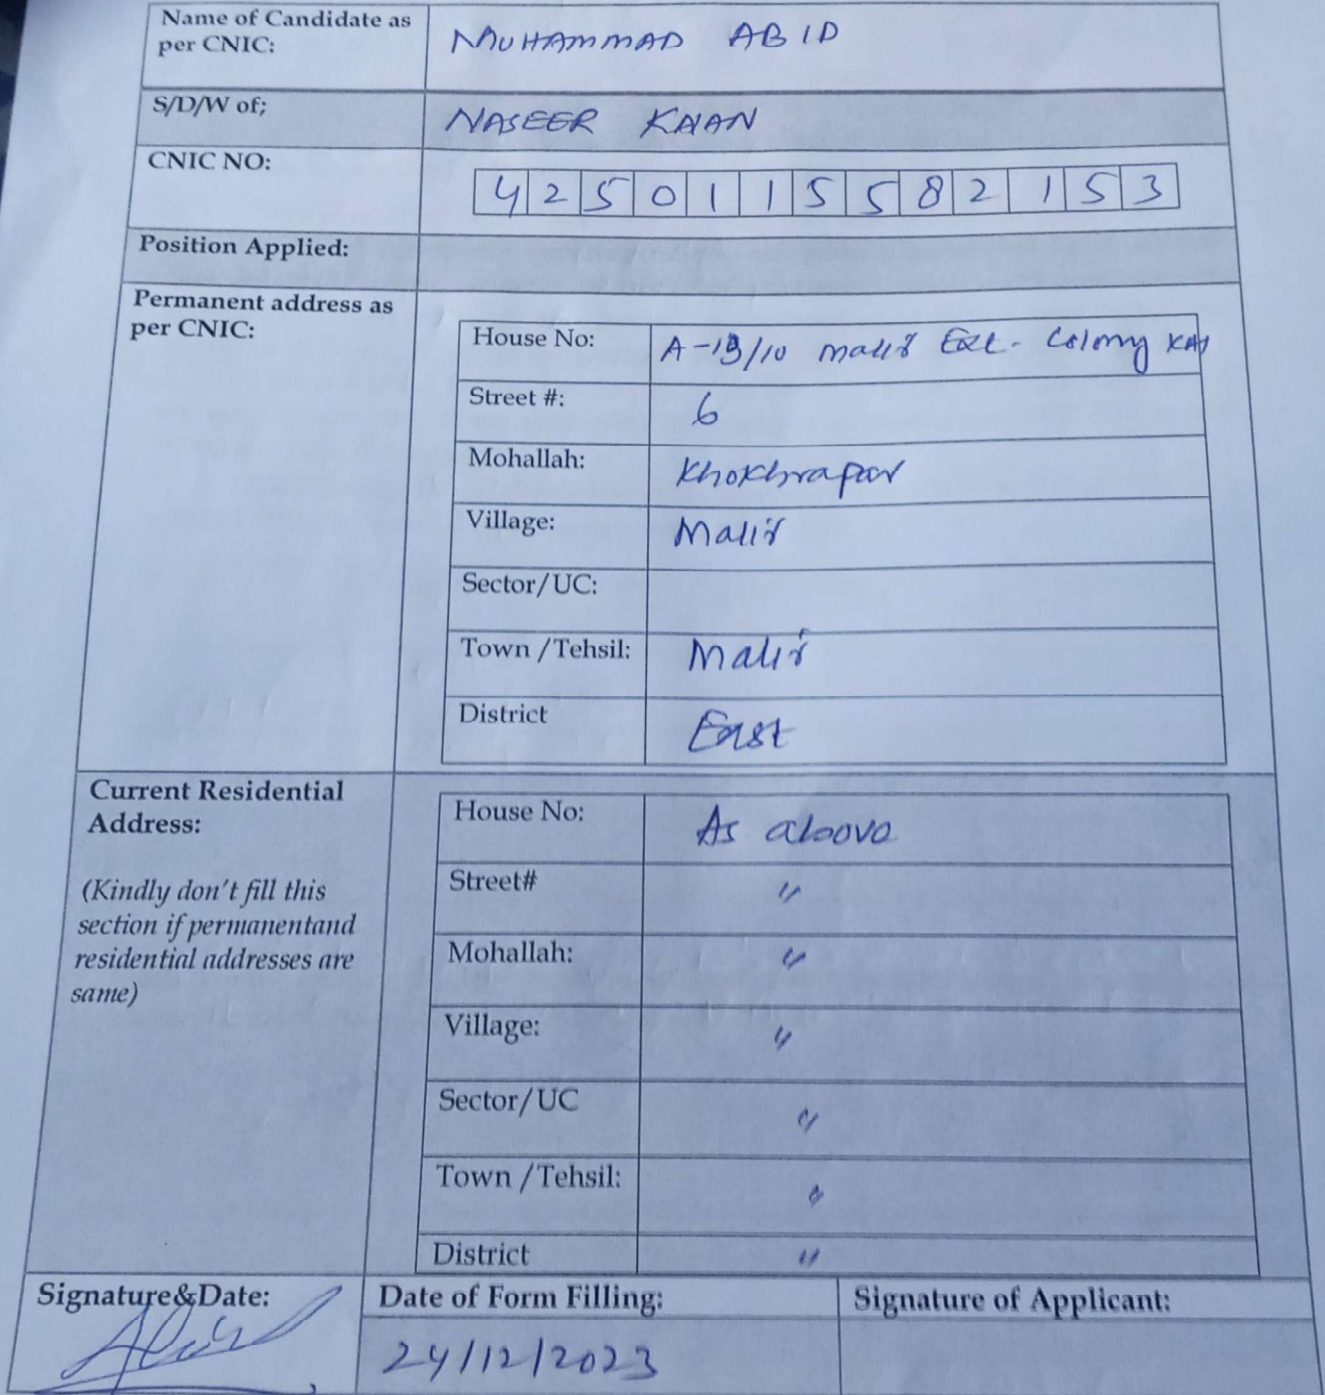 Name of Candidate as
per CNIC:
MUHAMMAD ABID
S/D/W of;
NASEER KHAN
CNIC NO:
4 2 5 0 1 1 5 5 8 2 1 5 3
Position Applied:
Permanent address as
per CNIC:
House No:
A-19/10 Malir Ext. Colony KHI
Street #:
6
Mohallah:
Khokhrapar
Village:
Malir
Sector/UC:
Town /Tehsil:
Malir
District
East
Current Residential
Address:
(Kindly don't fill this
section if permanentand
residential addresses are
same)
House No:
As above
Street#
"
Mohallah:
"
Village:
"
Sector/UC
"
Town /Tehsil:
"
District
"
Signature&Date:
Date of Form Filling:
24/12/2023
Signature of Applicant: